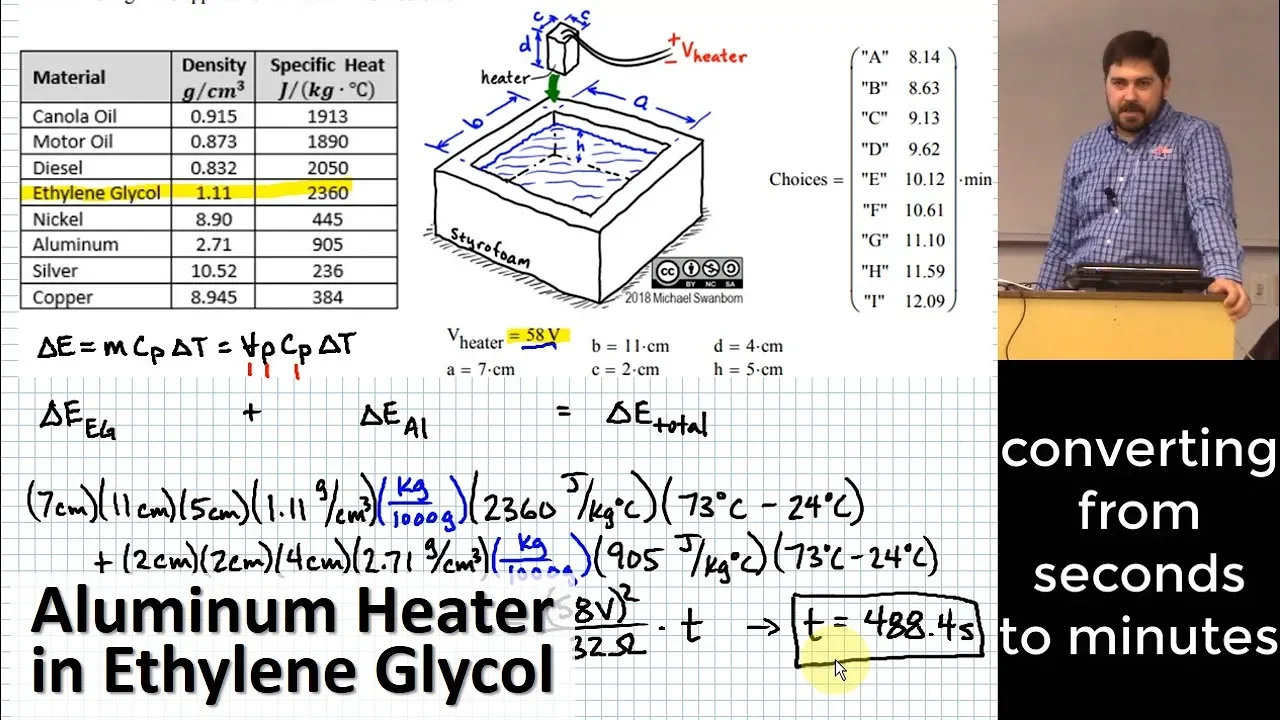 Material Density g/cm³ Specific Heat J/(kg · °C)
Canola Oil 0.915 1913
Motor Oil 0.873 1890
Diesel 0.832 2050
Ethylene Glycol 1.11 2360
Nickel 8.90 445
Aluminum 2.71 905
Silver 10.52 236
Copper 8.945 384
c c
d
+
Vheater
−
heater
a
b
h
Styrofoam
cc BY NC SA
2018 Michael Swanbom
Choices =
"A" 8.14
"B" 8.63
"C" 9.13
"D" 9.62
"E" 10.12
"F" 10.61
"G" 11.10
"H" 11.59
"I" 12.09
·min
Vheater = 58 V b = 11·cm d = 4·cm
a = 7·cm c = 2·cm h = 5·cm
ΔE = m Cp ΔT = Vρ Cp ΔT
ΔE EG + ΔE Al = ΔE total
(7cm)(11cm)(5cm)(1.11 g/cm³)(kg/1000g)(2360 J/kg°C)(73°C − 24°C)
+ (2cm)(2cm)(4cm)(2.71 g/cm³)(kg/1000g)(905 J/kg°C)(73°C − 24°C)
(58V)²/32Ω · t → t = 488.4s
Aluminum Heater
in Ethylene Glycol
converting
from
seconds
to minutes